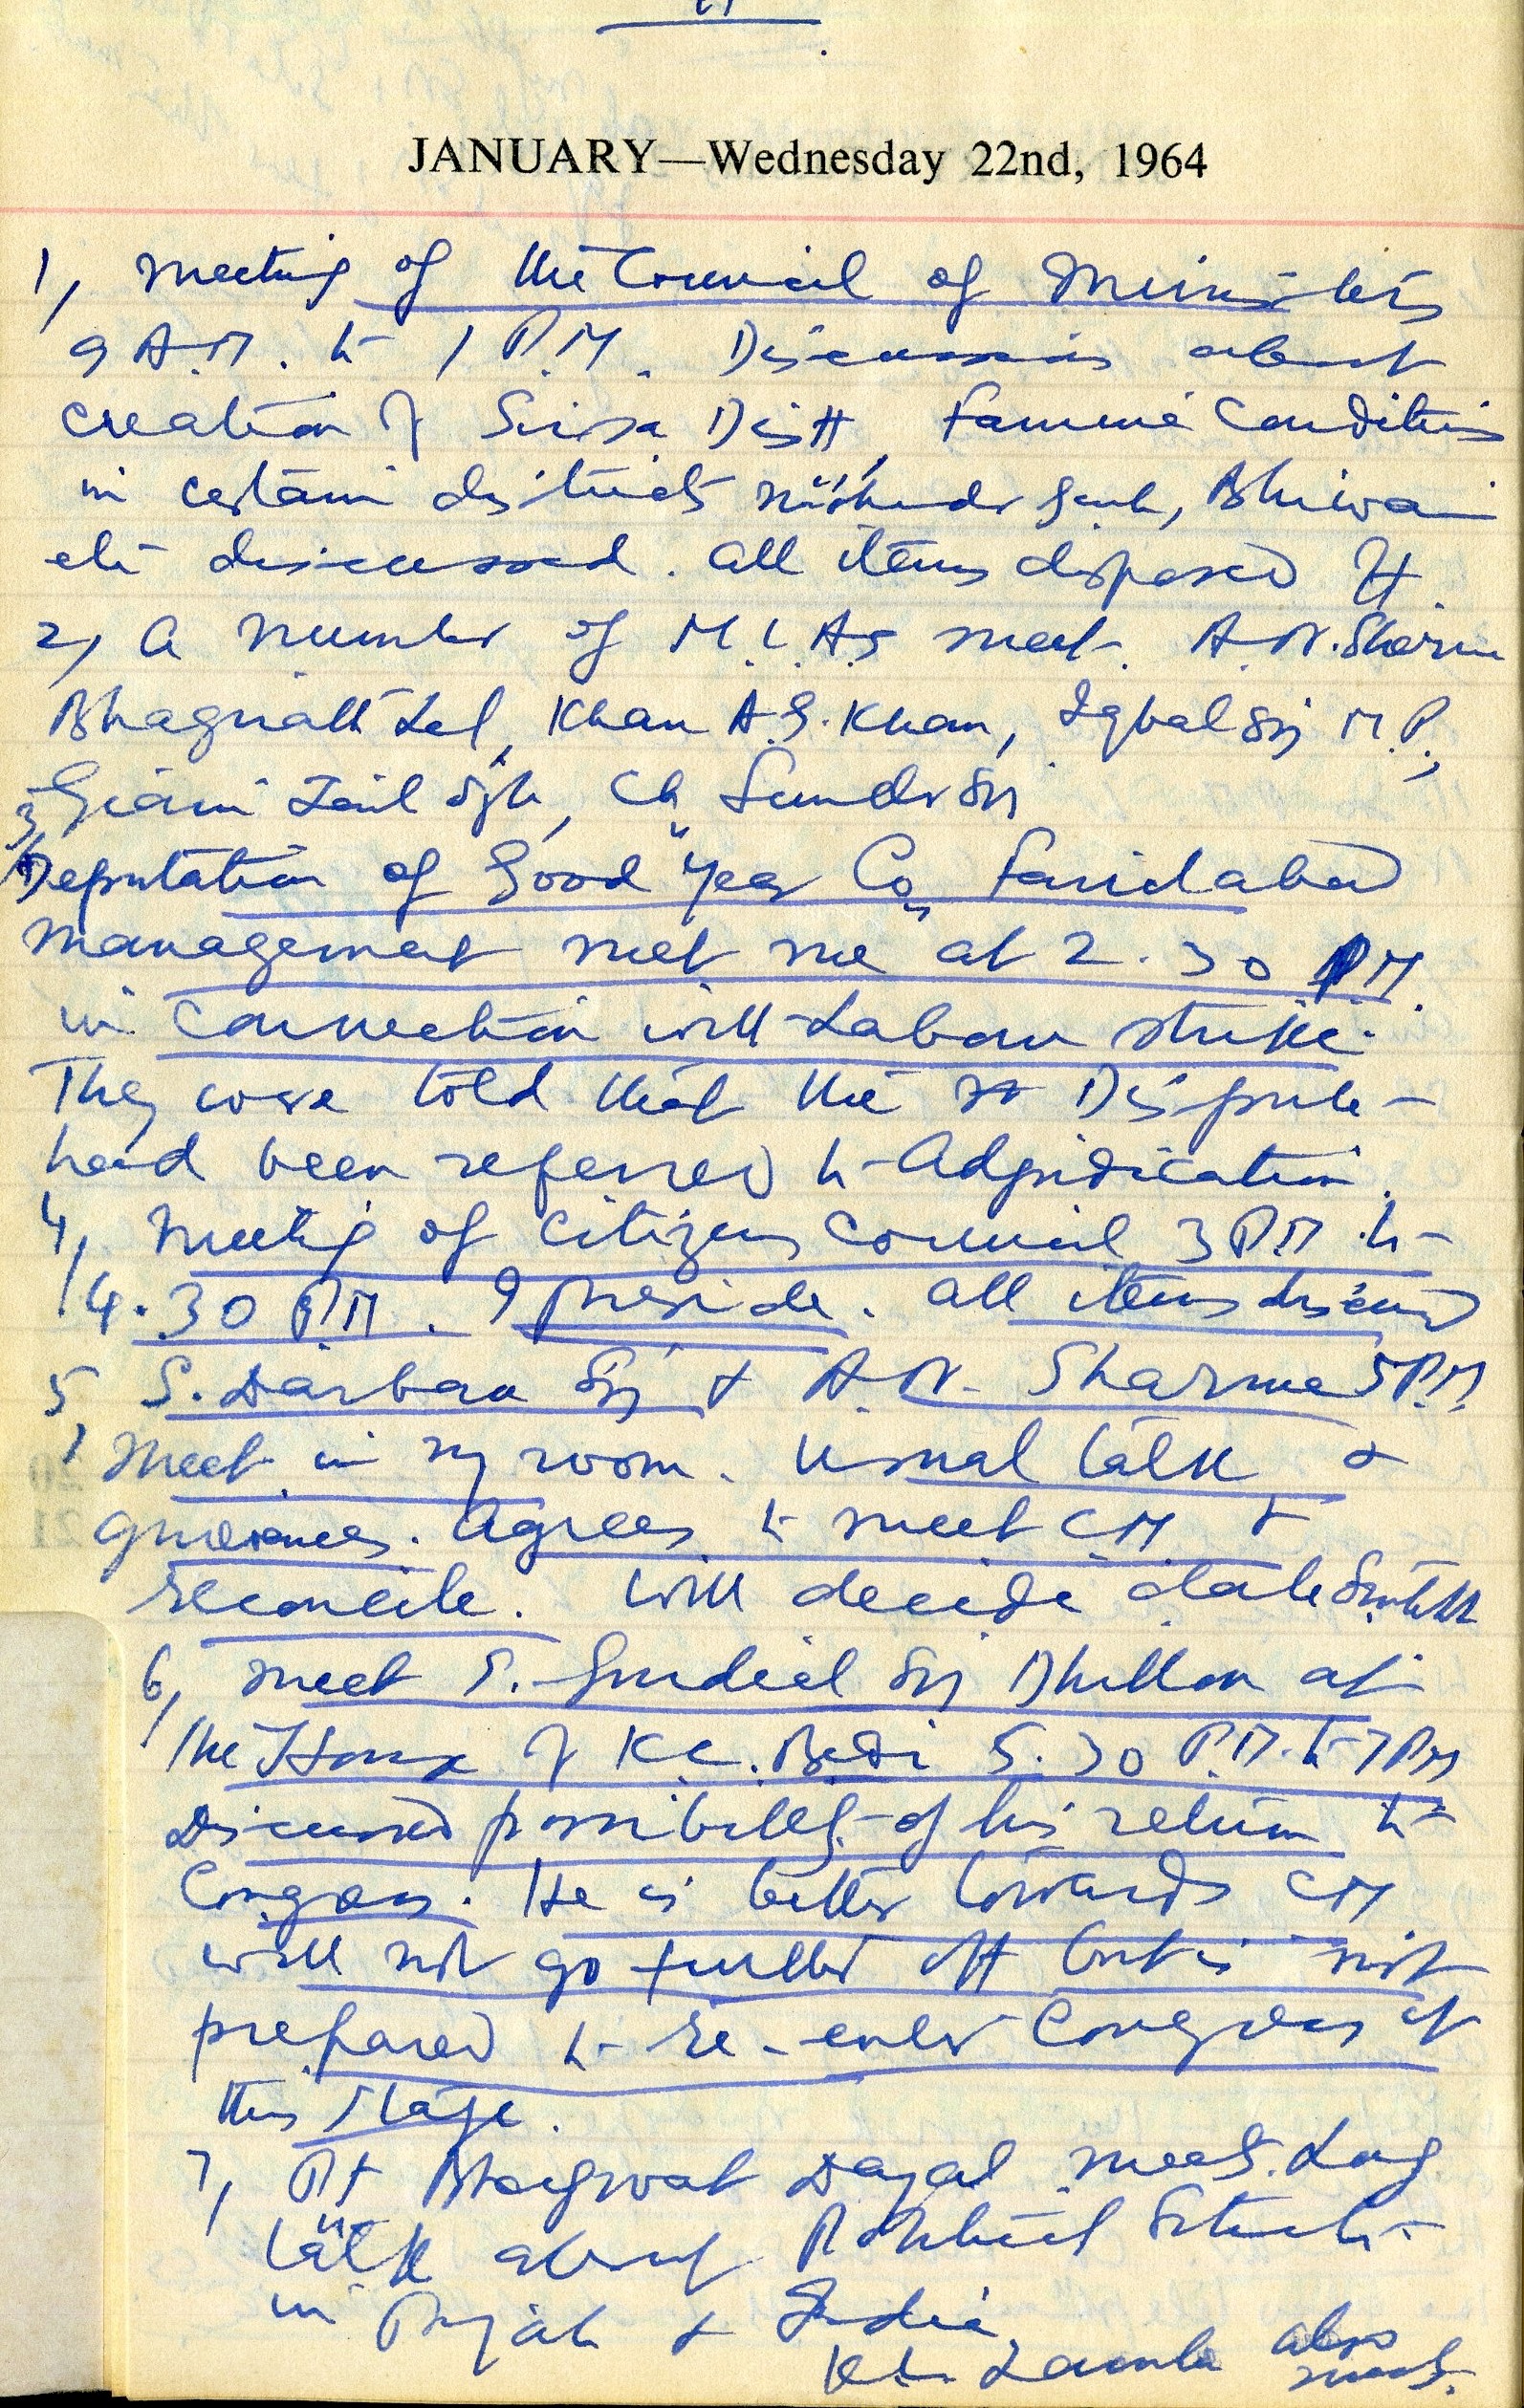 JANUARY—Wednesday 22nd, 1964
1, Meeting of the Council of Ministers
9 A.M. to 1 P.M. Discussions about
creation of Sirsa Distt, Famine Conditions
in certain districts Mohindergarh, Bhiwani
etc discussed. All items disposed off.
2, A number of M.L.A.s meet. A.N. Sharma
Bhagirath Lal, Khan A.G. Khan, Iqbal Sgh M.P.,
Giani Zail Sgh, Ch Sunder Sgh
3, Deputation of Good Year Co, Faridabad
Management met me at 2.30 PM.
in connection with Labour strike.
They were told that the Dispute
had been referred to Adjudication.
4, Meeting of Citizens Council 3 P.M to
4.30 P.M. I preside. All items discussed
5, S. Darbara Sgh & A.N. Sharma 5 P.M.
Meet in my room. Usual talk &
grievances. Agrees to meet CM &
reconcile. Will decide date
6, Meet S. Gurdial Sgh Dhillon at
the House of K.C. Bedi 5.30 P.M. to 7 PM
Discussed possibility of his return to
Congress. He is better towards CM
will not go further off but is not
prepared to re-enter Congress at
this stage.
7, Pt Bhagwat Dayal meets. Long
talk about Political Situation
in Punjab & India.
Lamba also
meets.